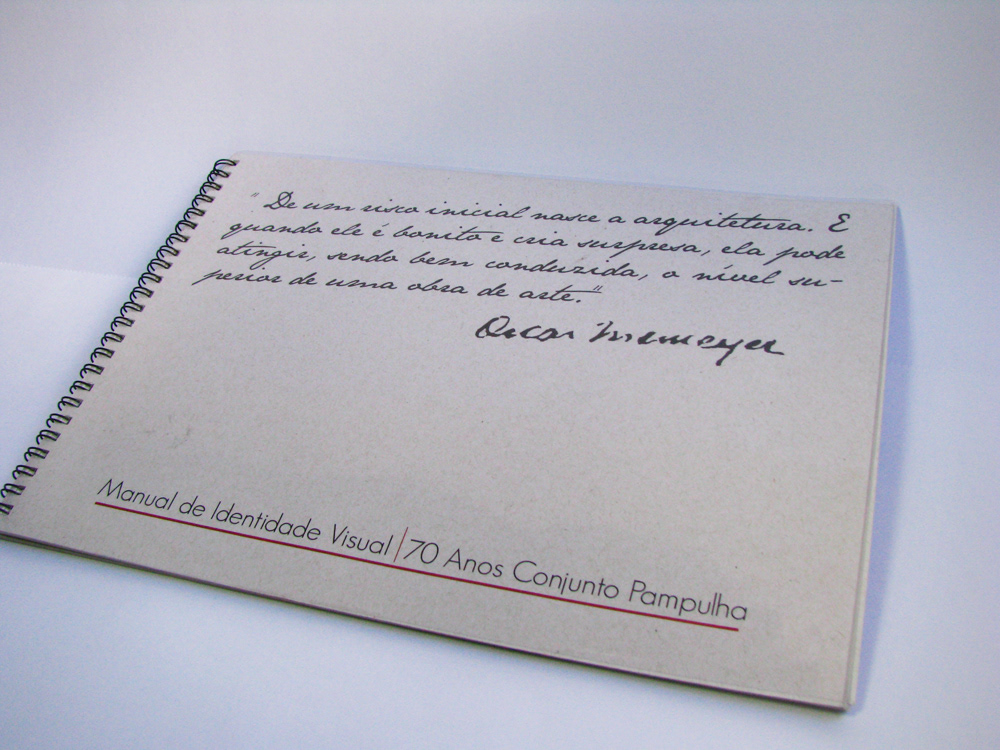 "De um risco inicial nasce a arquitetura. E
quando ele é bonito e cria surpresa, ela pode
atingir, sendo bem conduzida, o nível su-
perior de uma obra de arte."
Oscar Niemeyer
Manual de Identidade Visual | 70 Anos Conjunto Pampulha